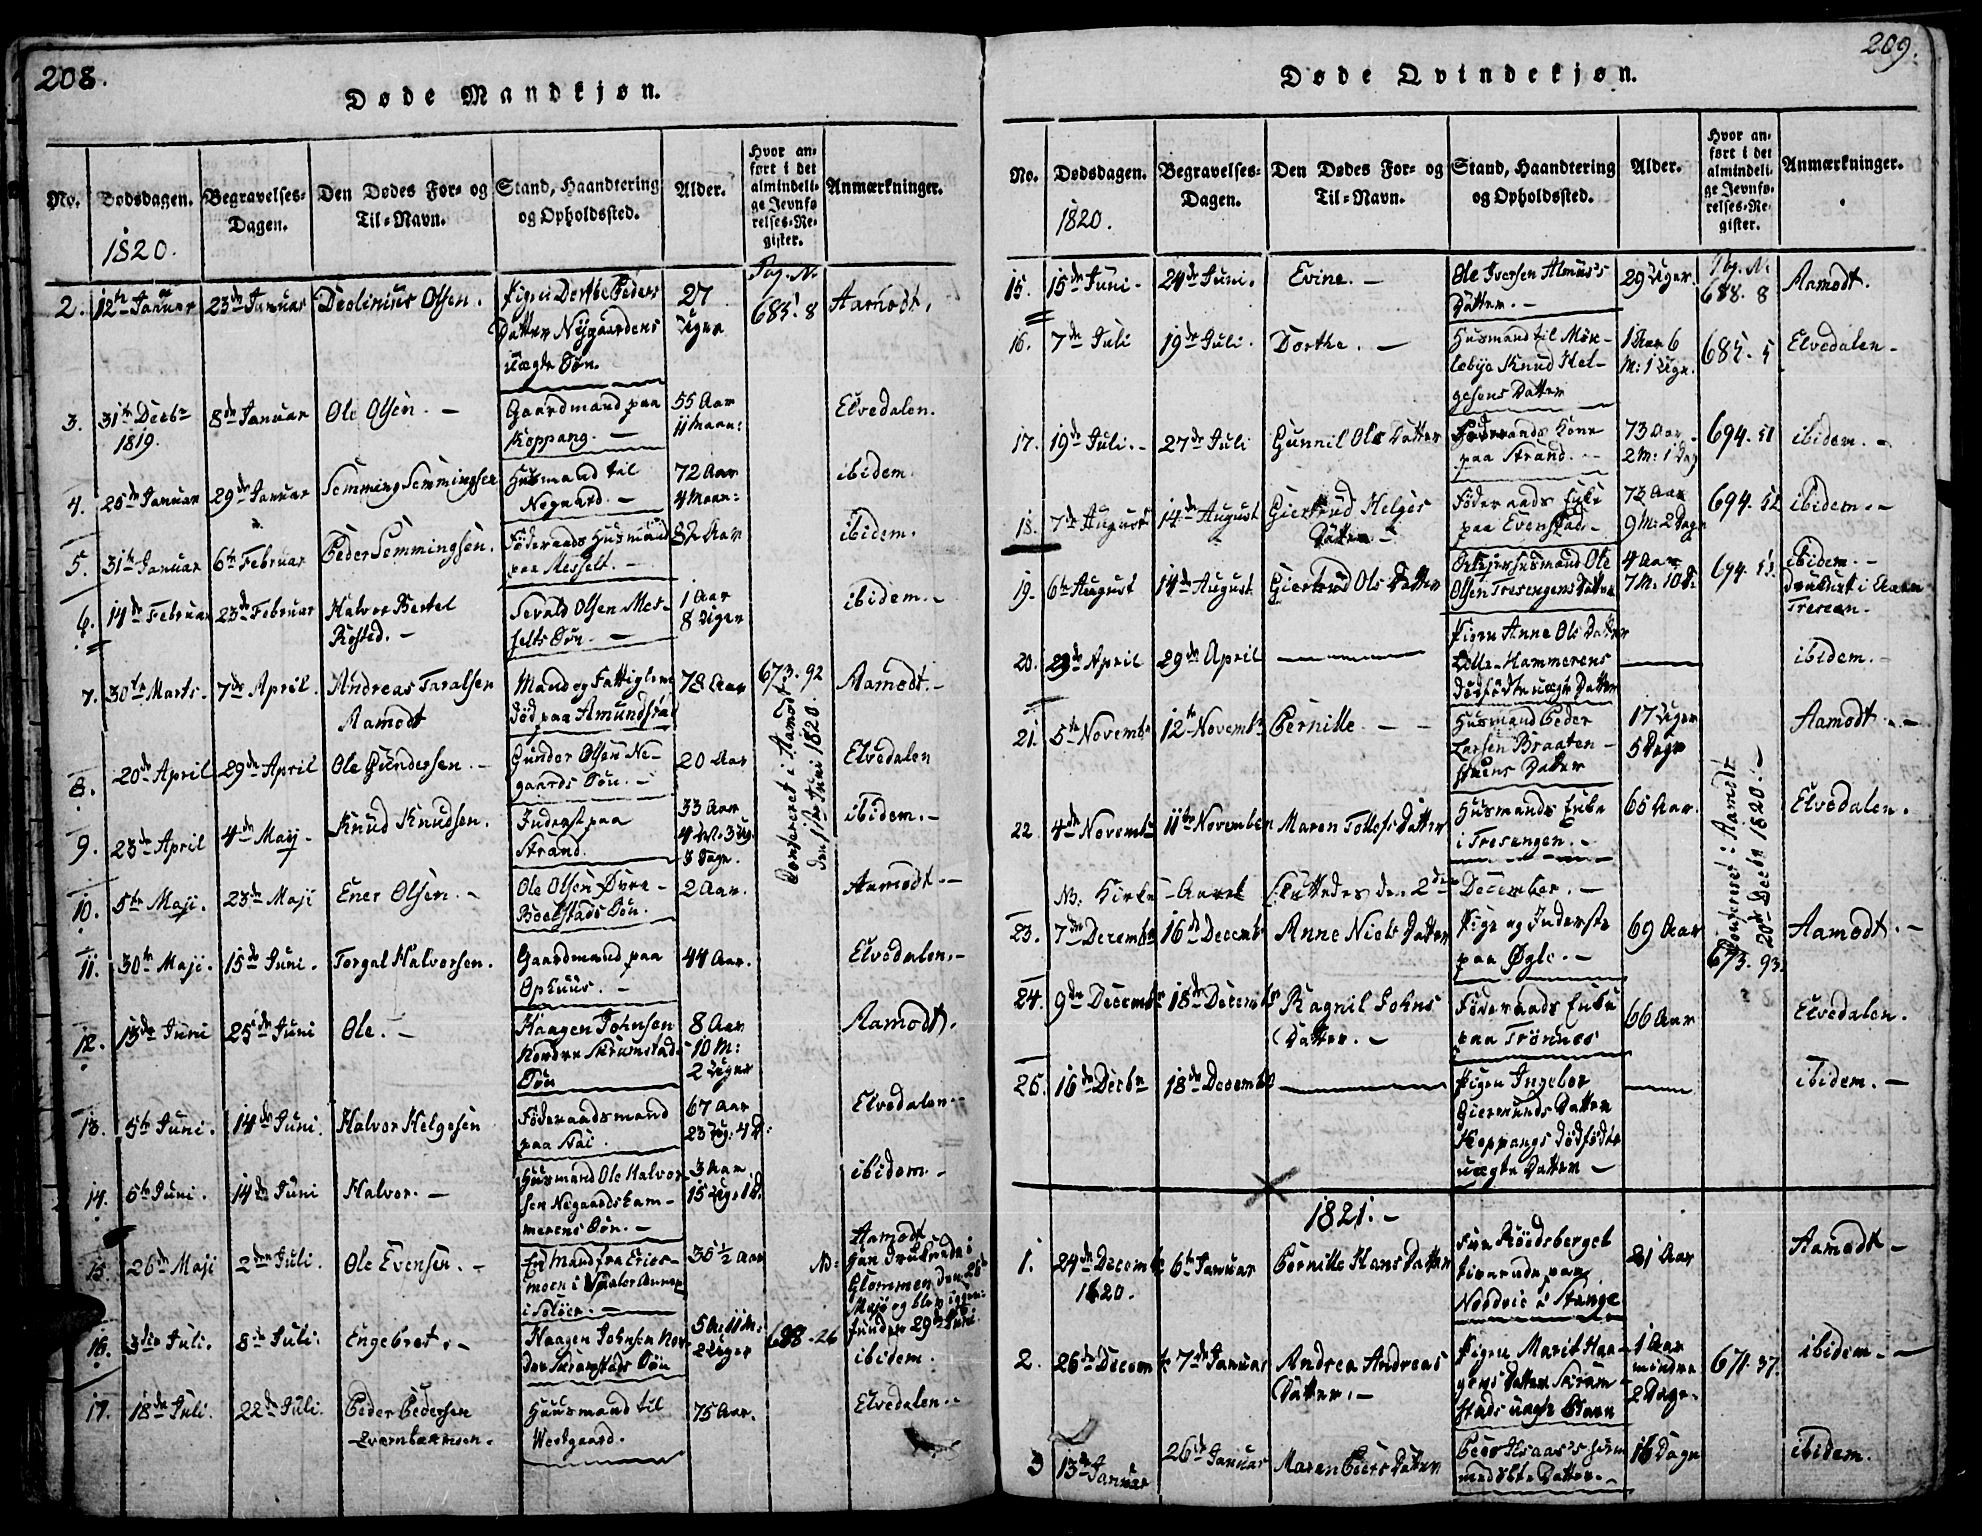 208.
Døde Mandkjøn.
No.
Dødsdagen.
1820.
Begravelses-
Dagen.
Den Dødes For- og
Til-Navn.
Stand, Haandtering
og Opholdssted.
Alder.
Hvor an-
ført i det
almindeli-
ge Jevnfø
relses-Re-
gister.
Anmærkninger.
Pag. N.
2. 12te Januar 23de Januar Deolinius Olsen. Pigen Dorthe Peders 27 685. 8 Aamodt.
Datter Nygaardens Uger
uægte Søn.
3. 31te Decbr 8de Januar Ole Olsen. – Gaardmand paa 55 Aar Elvedalen.
1819. Koppang. – 11 Maan:
4. 25de Januar 29de Januar Semming Semmingsen Husmand til 72 Aar ibidem.
Negaard. – 4 Maan:
5. 31te Januar 6te Februar Peder Semmingsen. Föderaads Husmand 82 Aar ibidem.
paa Messelt. –
6. 14de Februar 23de Februar Halvor Bertel Sevald Olsen Mes- 1 Aar ibidem. –
Rosted. – selts Søn. – 8 Uger
7. 30te Marts. 7de April. Andreas Taralsen Mand og Fattiglem 78 Aar 673. 92 Aamodt. –
Aamodt död paa Amundsrud
8. 20de April 29de April Ole Gundersen. – Gunder Olsen Ne- 20 Aar Elvedalen
gaards Søn. –
9. 23de April 4de Maj – Knud Knudsen. Inderst paa 33 Aar ibidem. –
Strand. 4 M. 3 Ug.
3 Dage.
Confereret i Aamodt
den 1ste Juni 1820.
10. 5te Maji. 23de Maji Ener Olsen. – Ole Olsen 2 Aar. Aamodt. –
Søn.
11. 30te Maji. 15de Juni. Torgal Halvorsen. Gaardmand paa 44 Aar. Elvedalen. –
Ophuus. –
12. 13de Juni 25de Juni Ole. – Haagen Johnsen 8 Aar Aamodt.
Nordre Skramstads 10 M:
Søn 2 Uger
13. 5te Juni. 14de Juni. Halvor Helgesen Föderaadsmand 67 Aar Elvedalen. –
paa Stai. 23 Ug. 4 D:
14. 5te Juni. 14de Juni Halvor. – Husmand Ole Halvor- 3 Aar ibidem. –
sen Negaardskam- 15 Uger 1 D.
merens Søn. –
15. 26de Maji 2den Juli. Ole Evensen. – En Mand fra Eries- 36 1/2 Aar NB: Aamodt
moen i Vaaler Annex Han druknede i
i Soløer. – Glommen den 26de
Maji og blev igjen-
funden 29de Juni.
16. 3die Juli. 8de Juli. Engebret. – Haagen Johnsen Nor- 5 A. 11 M. 688. 26 ibidem.
dre Skramstads Søn 2 Uger
17. 18de Juli. 22de Juli. Peder Pedersen Huusmand til 75 Aar. Elvedalen. –
Westgaard.
209.
Døde Qvindekjøn.
No.
Dødsdagen.
1820.
Begravelses-
Dagen.
Den Dødes For- og
Til-Navn.
Stand, Haandtering
og Opholdssted.
Alder.
Hvor an-
ført i det
almindeli-
ge Jevnfø-
relses-Re-
gister.
Anmærkninger.
Pag. N.
15. 15de Juni. 24de Juni. Evine. – Ole Iversen Almus's 29 Uger. 688. 8 Aamodt.
Datter. –
16. 7de Juli 19de Juli. Dorthe. – Husmand til Mök- 1 Aar 6 685. 5 Elvedalen –
lebye Knud Hel- M: 1 Uge.
gesens Datter
17. 19de Juli. – 27de Juli Gunnil Ols Datter Föderaads Kone 73 Aar. 694. 51 ibidem. –
paa Strand. – 2 M: 1 Dag
18. 7de August 14de August Giertrud Helges Föderaads Enke 73 Aar 694. 52 ibidem. –
Datter – paa Evenstad. – 9 M: 2 Dage
19. 6te August 14de August Giertrud Ols Datter Husmand Ole 4 Aar 694. ibidem. –
Olsen Tresengens Datter 7 M. 10 D: druknet i Aaen
20. 29de April 29de April – Pigen Anne Ols Datter – ibidem. –
Lille-Hammerens
dödfödte uægte Datter
21. 5te Novembr 12te Novembr Pernille – Husmand Peder 17 Uger Aamodt. –
Larsen Braaten – 5 Dage
stuens Datter
22. 4de Novembr 11te November Maren Tollefs Datter Husmands Enke 65 Aar. Elvedalen.
i Tresengen. –
NB. Kirke-Aaret sluttedes den 2den December. –
Confereret i Aamodt
20de Decbr 1820. –
23. 7de Decembr 16de Decembr Anne Niels Datter Pige og Inderste 69 Aar 673. 93. Aamodt. –
paa Øgle. –
24. 9de Decembr 18de Decembr Ragnil Johns Föderaads Enke 66 Aar Elvedalen.
Datter. – paa Trönnes
25. 16de Decbr 18de Decembr – Pigen Ingebor – ibidem. –
Giermunds Datter
Koppangs dödfödte
uægte Datter –
1821. –
1. 24de Decembr 6te Januar Pernille Hans Datter Fra Röedsberget 21 Aar Aamodt –
1820.
i Stange
2. 26de Decembr 7de Januar Andrea Andreas Pigen Marit Haa- 1 Aar 671. 37. ibidem. –
Datter. – gens Datter Skram- mindre
stads uægte Barn 2 Dage. –
3 13de Januar 26de Januar Maren Peers Datter Peer Isaac's 16 Dage ibidem.
Datter. –